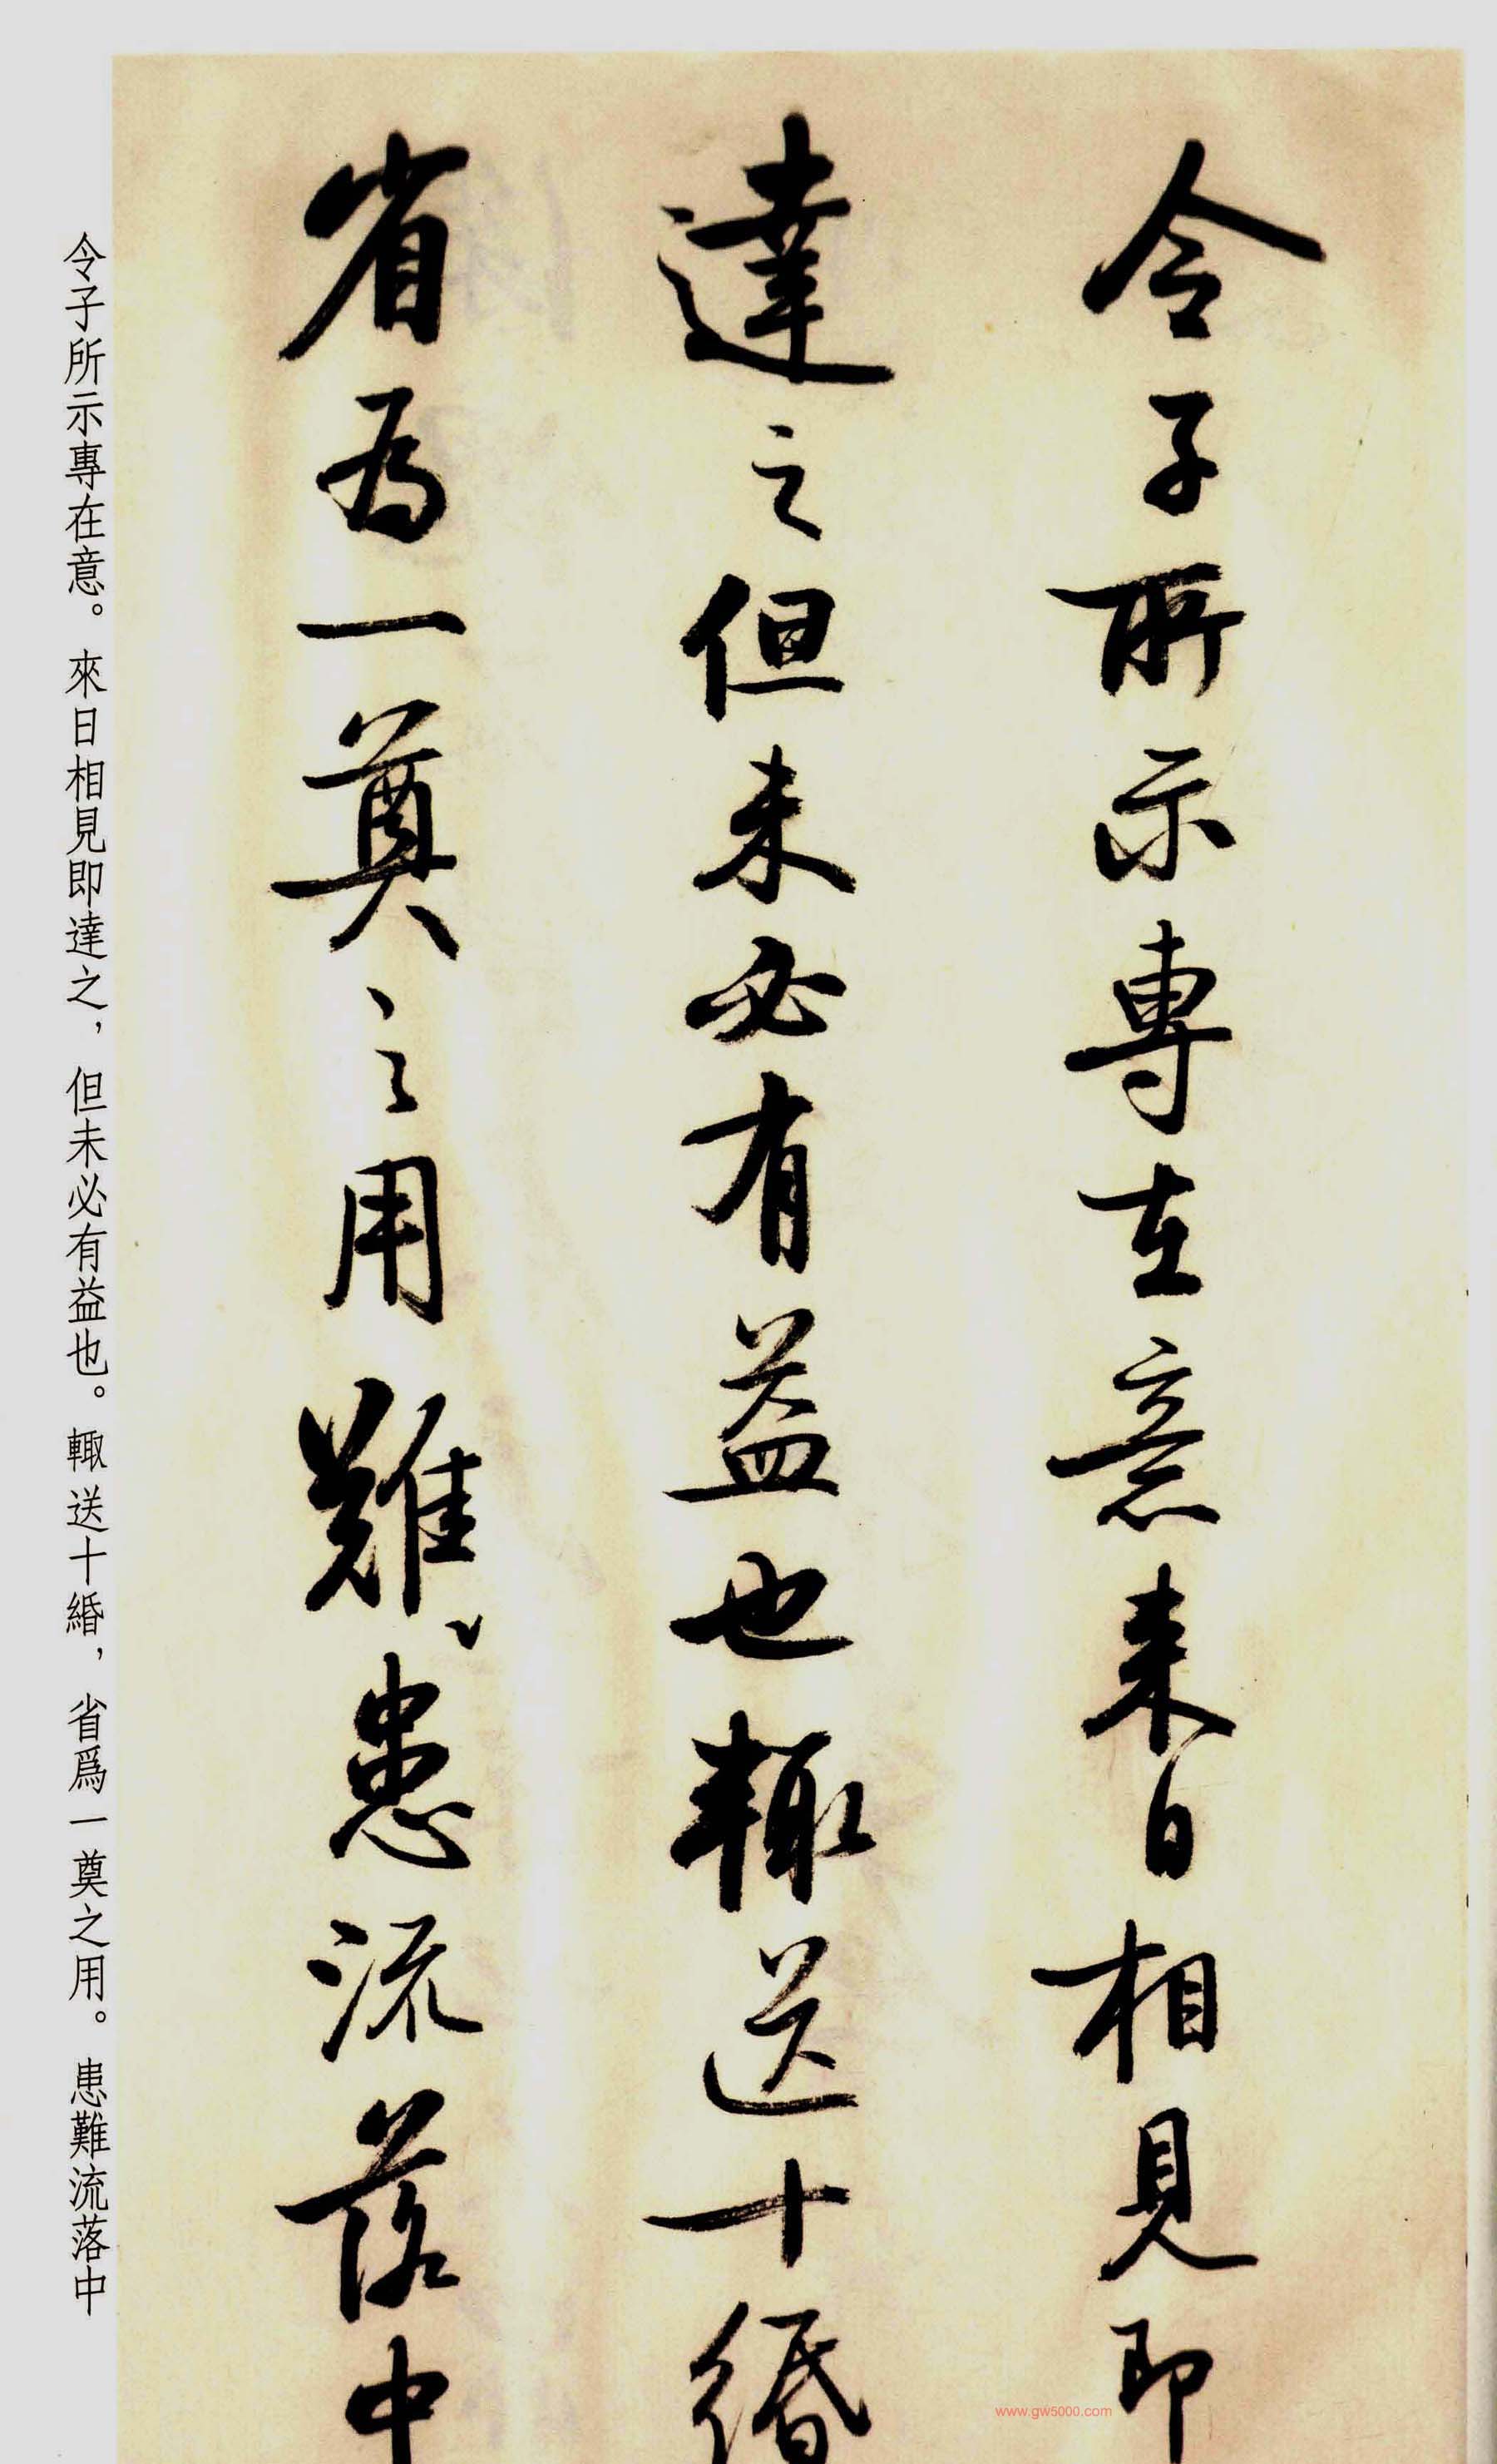 令子所示專在意来日相見即
達之但未必有益也輙送十緡
省為一奠之用難患流落中
令子所示專在意。來日相見即達之，但未必有益也。輙送十緡，省爲一奠之用。患難流落中
www.gw5000.com